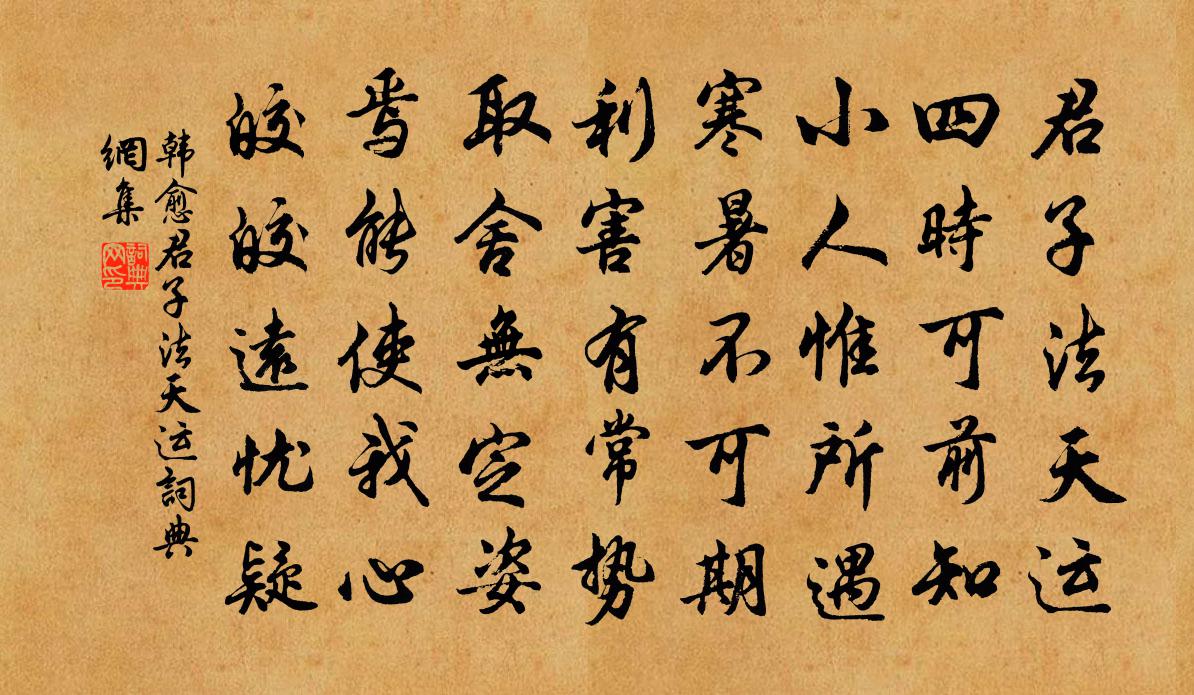 君子法天运
四時可前知
小人惟所遇
寒暑不可期
利害有常势
取舍無定姿
焉能使我心
皎皎遠忧疑
韩愈君子法天运詞典
網集
詞典
网印